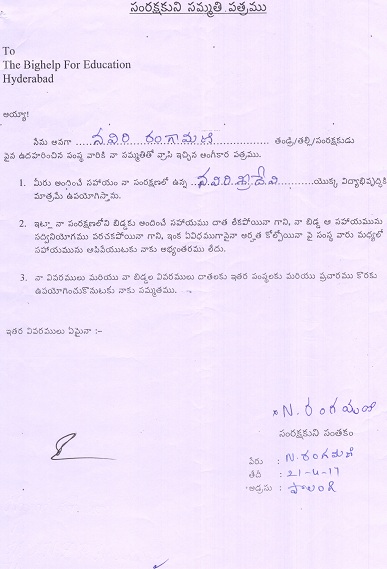 సంరక్షకుని సమ్మతి పత్రము
To
The Bighelp For Education
Hyderabad
అయ్యా!
నేను అనగా ........ నవిరి రంగామణి ........ తండ్రి/తల్లి/సంరక్షకుడు
పైన ఉదహరించిన సంస్థ వారికి నా సమ్మతితో వ్రాసి ఇచ్చిన అంగీకార పత్రము.
1. మీరు అందించే సహాయం నా సంరక్షణలో ఉన్న ..నవిరి.శ్రీదేవి..........యొక్క విద్యాభివృద్ధికి
మాత్రమే ఉపయోగిస్తాను.
2. ఇట్లా నా సంరక్షణలోని బిడ్డకు అందించే సహాయము దాత లేకపోయినా గాని, నా బిడ్డ ఆ సహాయమును
సద్వినియోగము పరచకపోయినా గాని, ఇంక ఏవిధముగానైనా అర్హత కోల్పోయినా పై సంస్థ వారు మధ్యలో
సహాయమును ఆపివేయుటకు నాకు అభ్యంతరము లేదు.
3. నా వివరములు మరియు నా బిడ్డల వివరములు దాతలకు ఇతర సంస్థలకు మరియు ప్రచారము కొరకు
ఉపయోగించుకొనుటకు నాకు సమ్మతము.
ఇతర వివరములు ఏమైనా :-
N. రంగమణి
సంరక్షకుని సంతకం
పేరు : N. రంగమణి
తేదీ : 21-4-17
అడ్రసు :